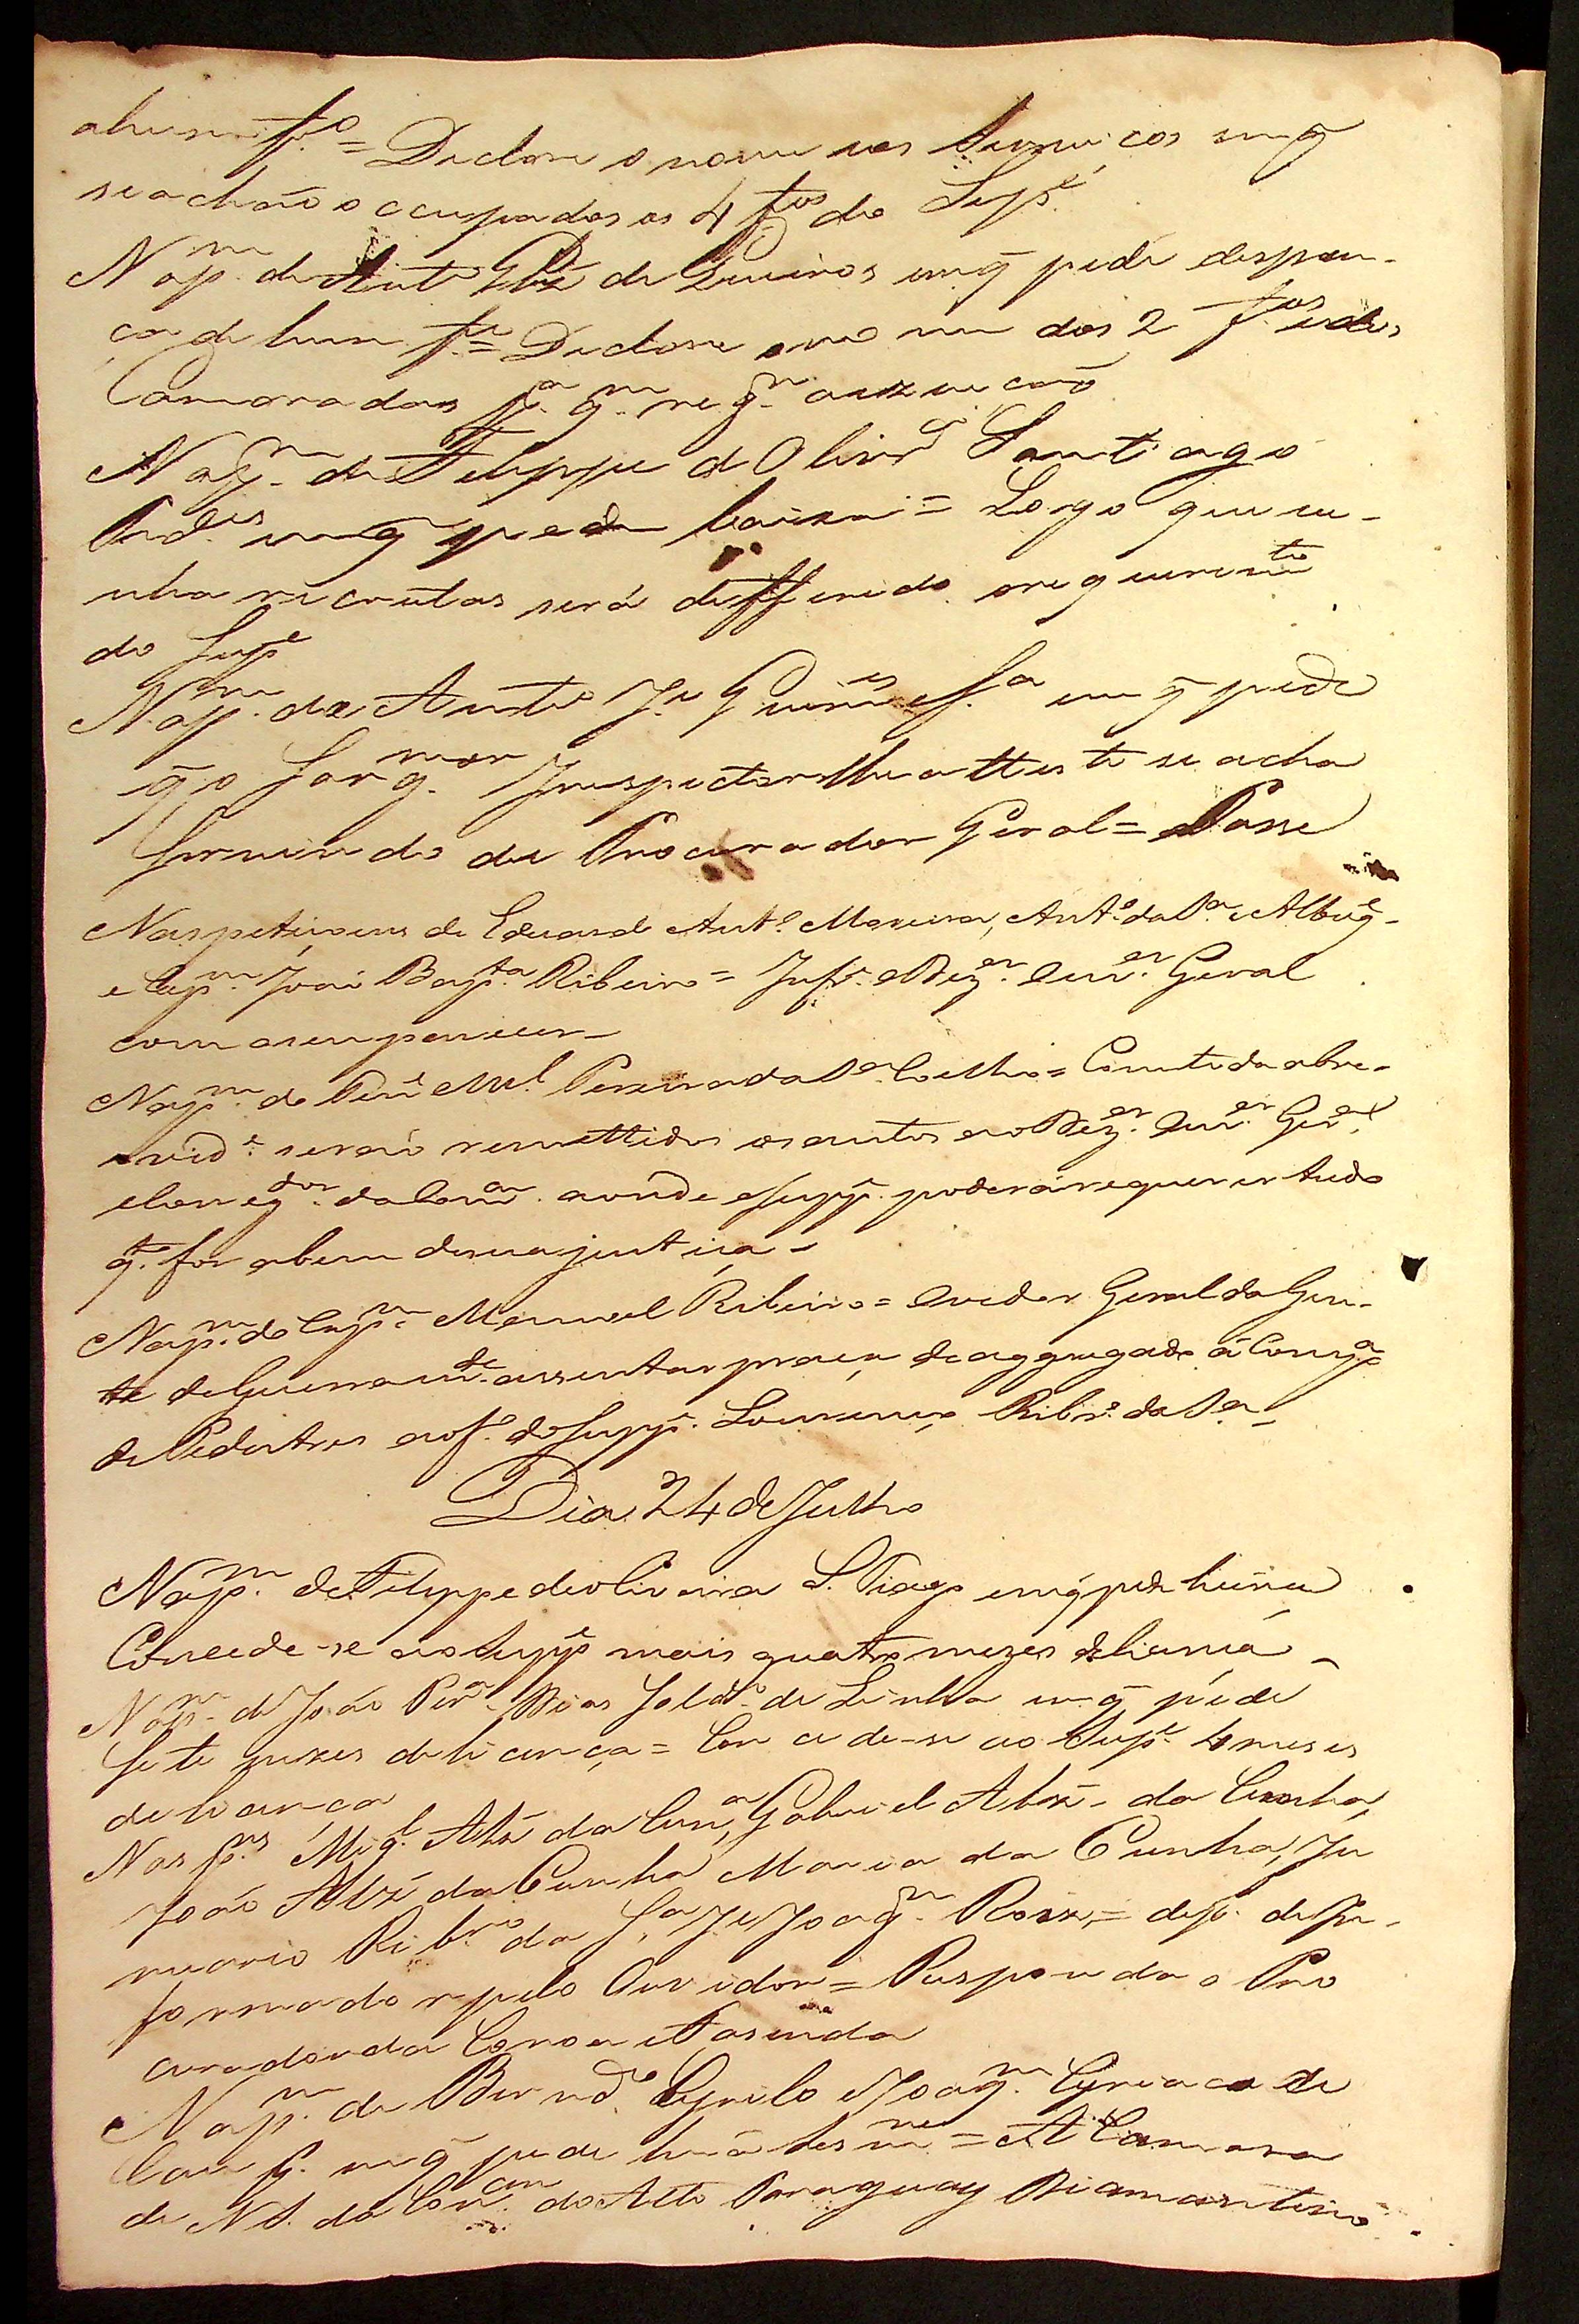 a hum f.º = Declare o nome nos serviços em q̃
se achaõ occupados os 4 f.ºs do Supp.e
Na p.m de Ant.º de Queiros em q̃ pede despen-
ça de hum f.º = Declare o nome dos 2 f.ºs e dos
Camaradas p.a q.m req.r a izencaõ
Na p.m de Felippe d Olivr.a Santiago
Ped.es em q̃ pede baixa = Logo que ve-
nha recrutas será defferido o requerim.to
do Sup.e
Na p.m de Anto J.e Guim.es S.a em q̃ pede
q̃ o Sarg.mor Inspector lhe atteste se acha
servindo de Procurador Geral = Passe
Nas petiçoens de Eduardo Ant.º Moreira, Ant.º da S.a e Albuq.e
e Cap.m Joaõ Bap.ta Ribeiro = Inf.e o Dez.or Ouv.or Geral
com o seu parecer _
Na p.m do Ten.e M.el Pereira da S.a Coelho = Cometida a bre-
vid.e seraõ remettidos os autos ao Dez.or Ouv.or Ger.al
e Correg.dor da Com.ca aonde o Supp.e poderá requerer tudo
q.to for a bem de sua justiça _
Na p.m do Cap.m Manoel Ribeiro = O Vedor Geral da Gen-
te de Guerra m.de assentar praça de aggregado á Comp.a
de Pedestres ao f.º do Supp.e Lourenço Ribr.º da S.a _
Dia 24 de Julho
Na p.m de Felippe de Oliveira S. Tiago em q̃ pede licença
Concede-se ao Supp.e mais quatro mezes de licença _
Na p.m de Joaõ Per.a Dias Sold.º de Linha em q̃ pede
Sete mezes de licença = Concede-se ao Sup.e 4 meses
de licança
Nas p.ns Mig.l Alz̃ da Cun.a, Gabriel Alz̃ da Cunha,
Joaõ Alz̃ da Cunha Maria da Cunha, Ja
nuario Ribr.º da S.a, J.e Joaq.m Roiz, = dep. de in-
formado r pelo Ouvidor = Responda o Pro
curador da Coroa e Fasenda
Na p.m de Bernd.º Cyrilo e Joaq.m Cyriaco de
em q̃ pede huã = A Camara
de N S. da Con.cam do Alto Paraguay Diamantino